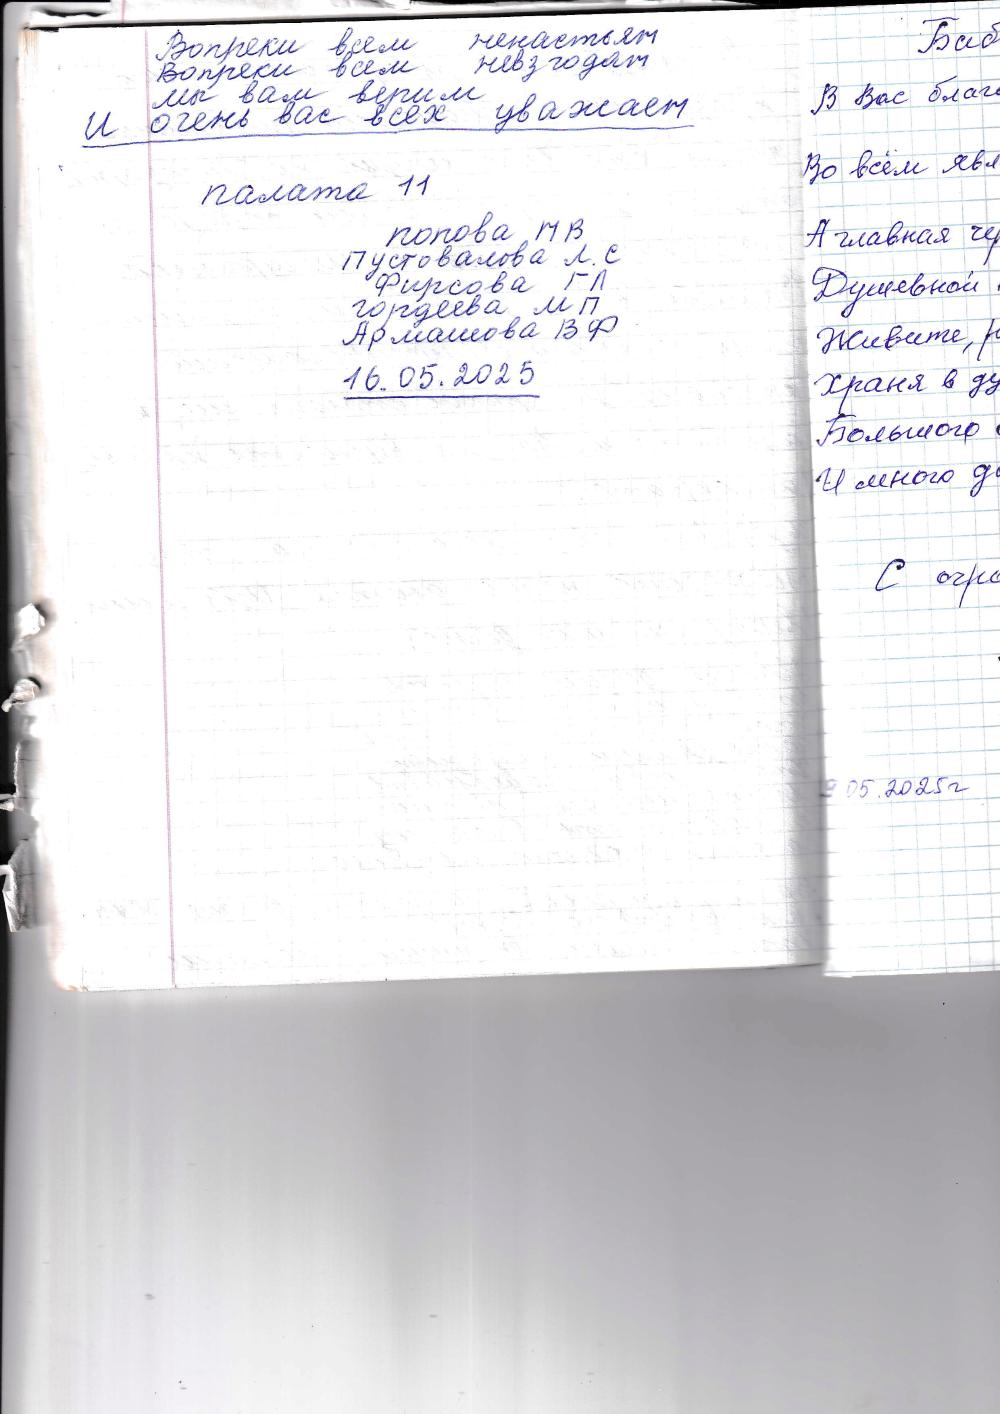 Вопреки всем ненастьям
Вопреки всем невзгодам
мы вам верим
И очень вас всех уважаем
палата 11
Попова М В
Пустовалова Л. С
Фирсова Г Л
Гордеева М П
Армашова В Ф
16.05.2025
В Вас
Во всём
А главная
Душевной
Живите,
Храня в
Большого
И много
С
05.2025г